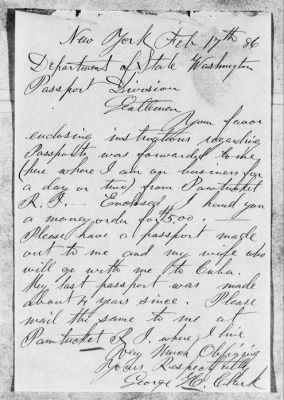 New York Feb 17th 86
Department of State Washington
Passport Division
Gentlemen
Your favor
enclosing instructions regarding
Passports was forwarded to me
(here where I am on business for
a day or two) from Pawtucket
R. I. Enclosed I hand you
a money order for $5.00.
Please have a passport made
out to me and my wife who
will go with me to Cuba.
My last passport was made
about 4 years since. Please
mail the same to me at
Pawtucket R. I. where I live
Very Much Obliging
Yours Respectfully
George H. Clark